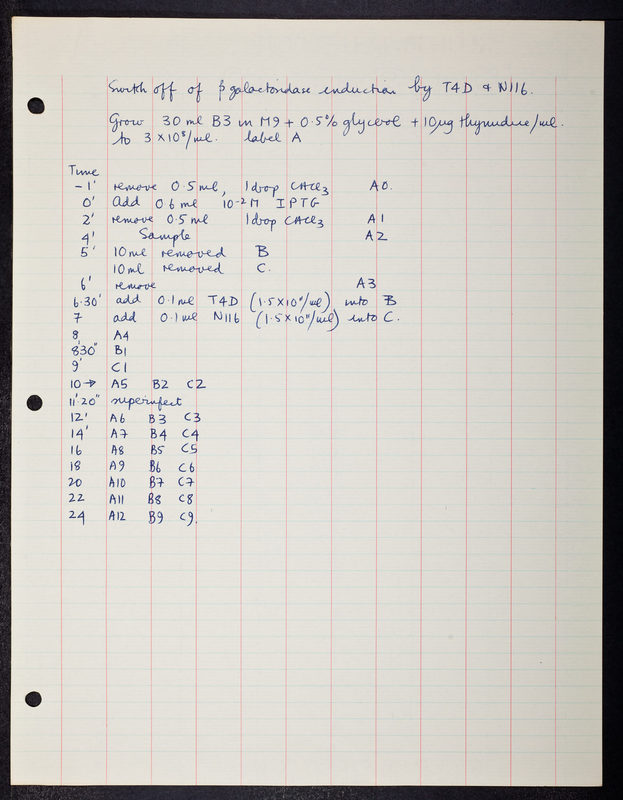 Switch off of β galactosidase induction by T4D & N116.
Grow 30 ml B3 in M9 + 0.5% glycerol + 10µg thymidine/ml.
to 3 x 10⁸/ml. label A
Time
-1' remove 0.5 ml, 1 drop CHCl3 A0.
0' Add 0.6 ml 10⁻²M IPTG
2' remove 0.5 ml 1 drop CHCl3 A1
4' Sample A2
5' 10 ml removed B
10 ml removed C.
6' remove A3
6.30' add 0.1 ml T4D (1.5 x 10¹¹/ml) into B
7 add 0.1 ml N116 (1.5 x 10¹¹/ml) into C.
8 A4
8'30" B1
9' C1
10 → A5 B2 C2
11'.20" superinfect
12' A6 B3 C3
14' A7 B4 C4
16 A8 B5 C5
18 A9 B6 C6
20 A10 B7 C7
22 A11 B8 C8
24 A12 B9 C9.